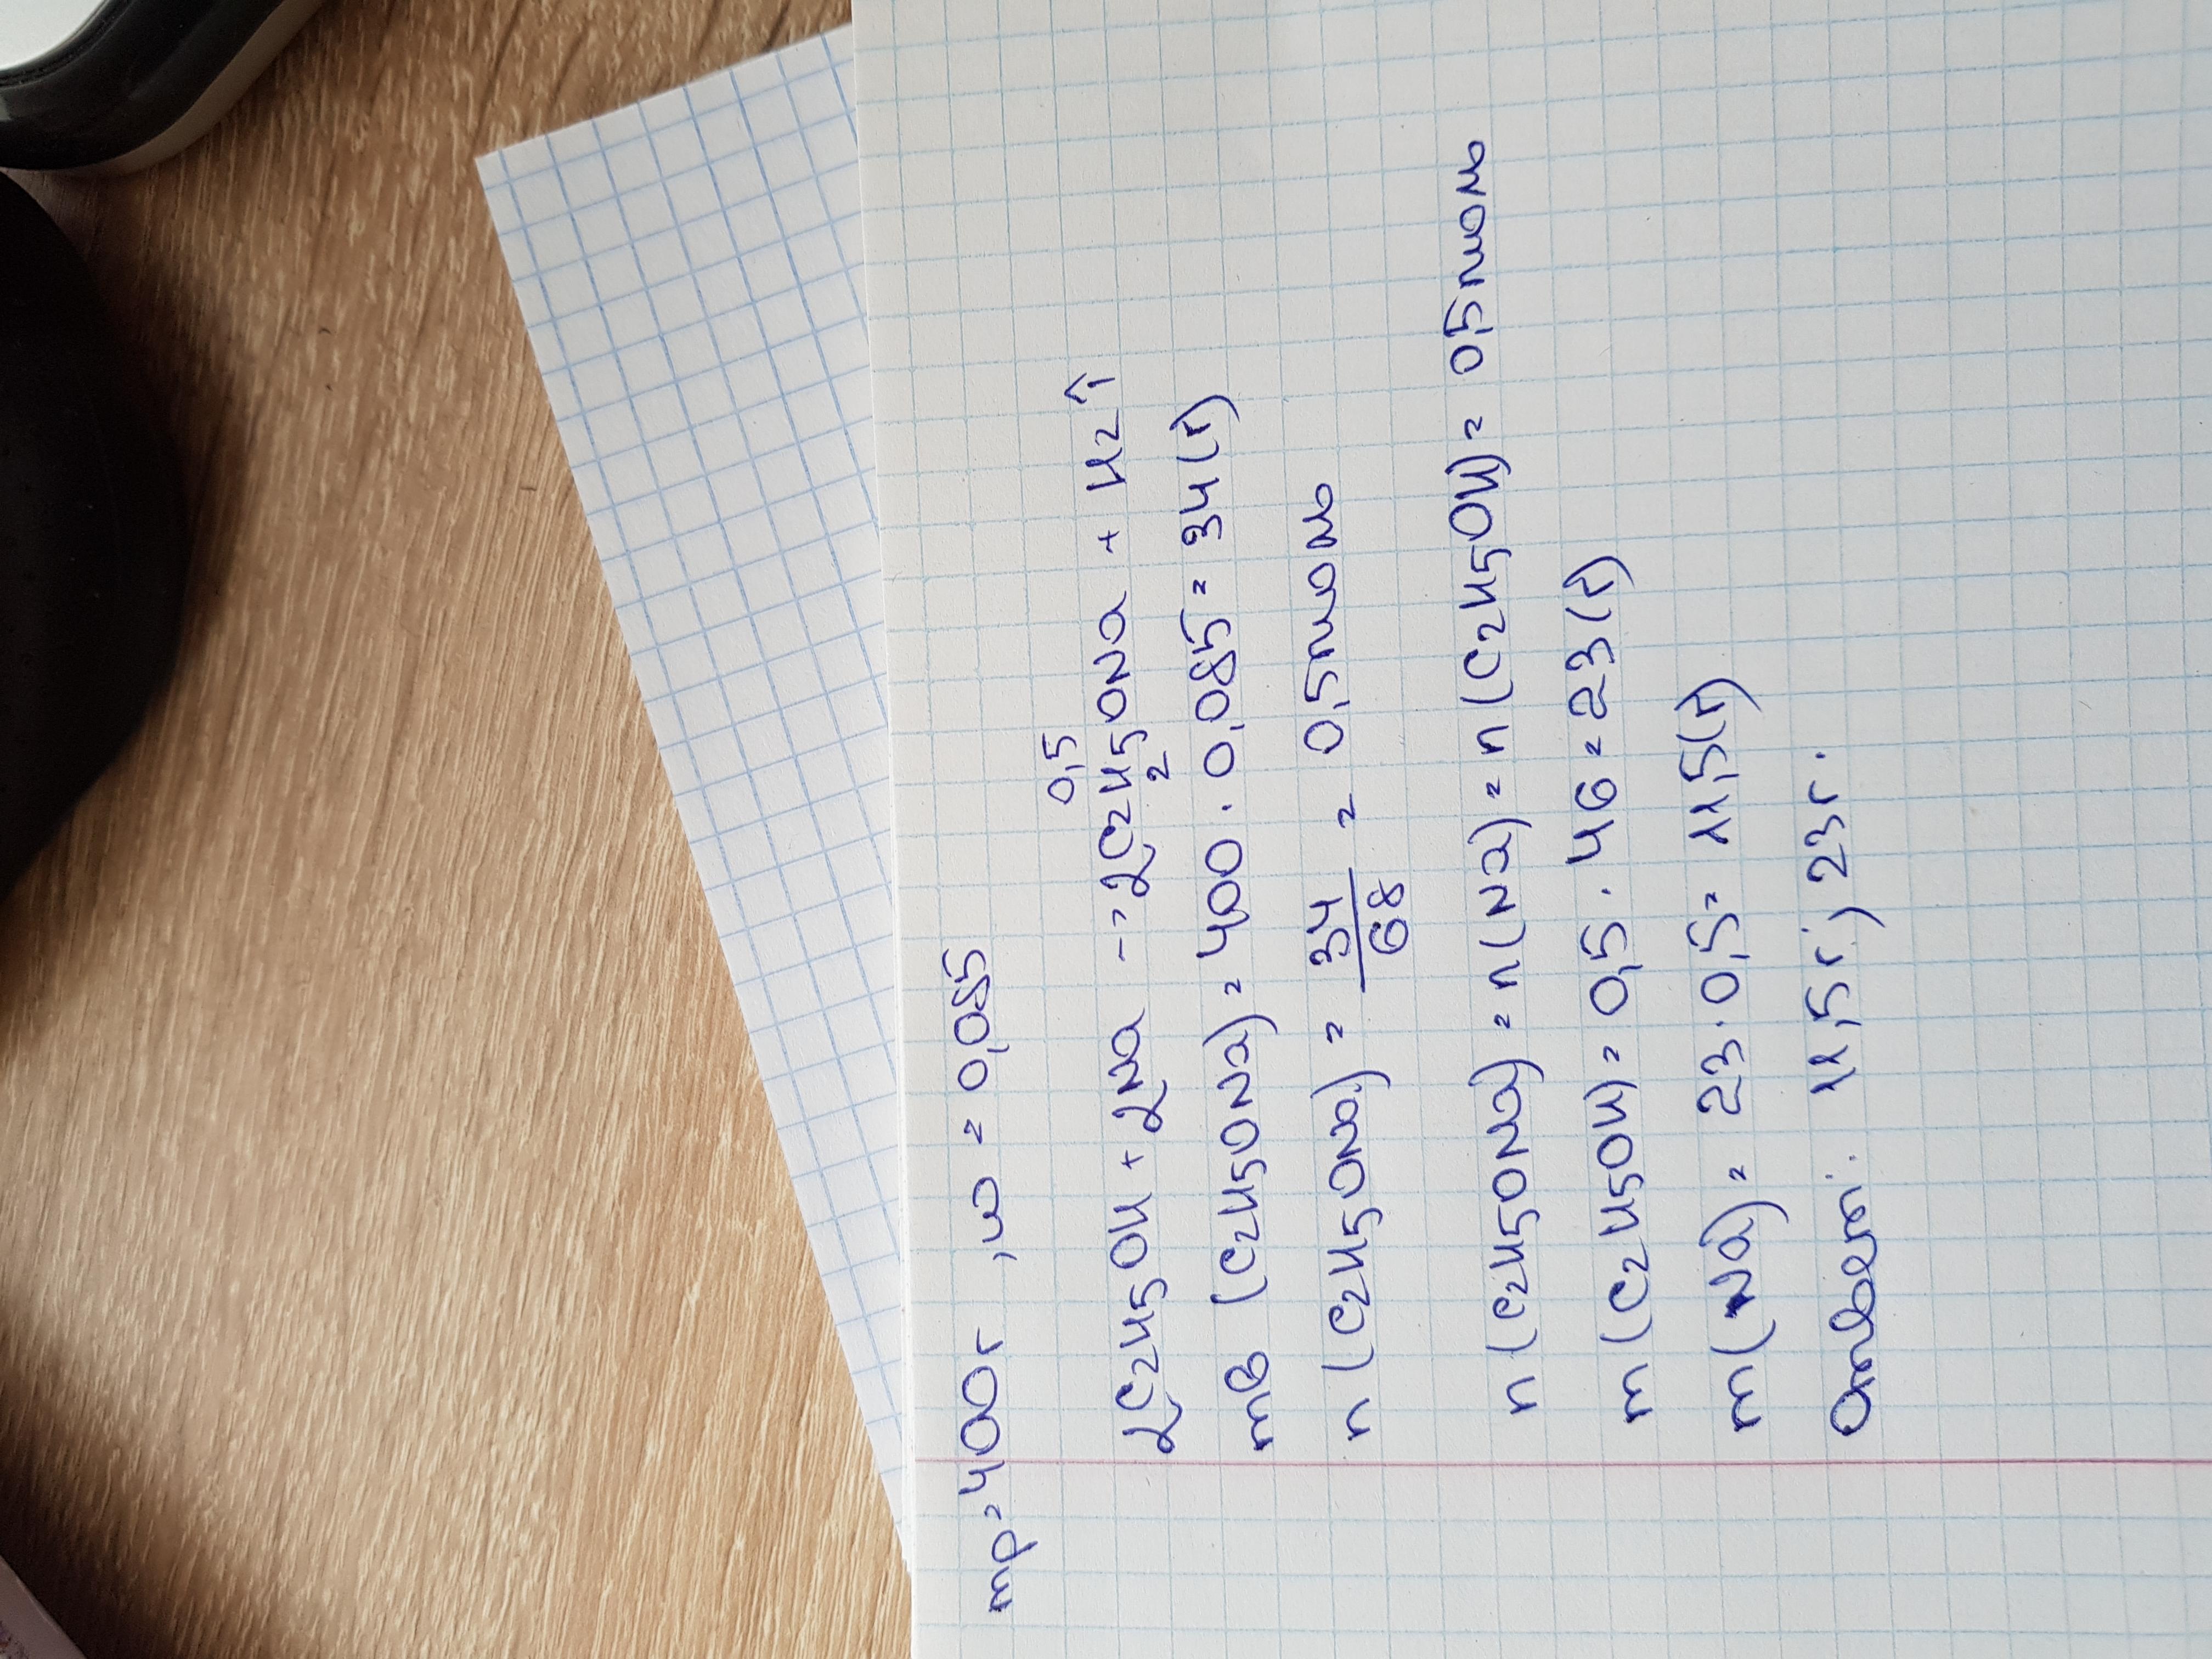 mp = 400г , ω = 0,085
0,5
2C2H5OH + 2Na → 2C2H5ONa + H2↑
2
mв (C2H5ONa) = 400 · 0,085 = 34 (г)
n (C2H5ONa) = 34/68 = 0,5 моль
n (C2H5ONa) = n (Na) = n (C2H5OH) = 0,5 моль
m (C2H5OH) = 0,5 · 46 = 23 (г)
m (Na) = 23 · 0,5 = 11,5 (г)
Ответ: 11,5 г; 23 г.